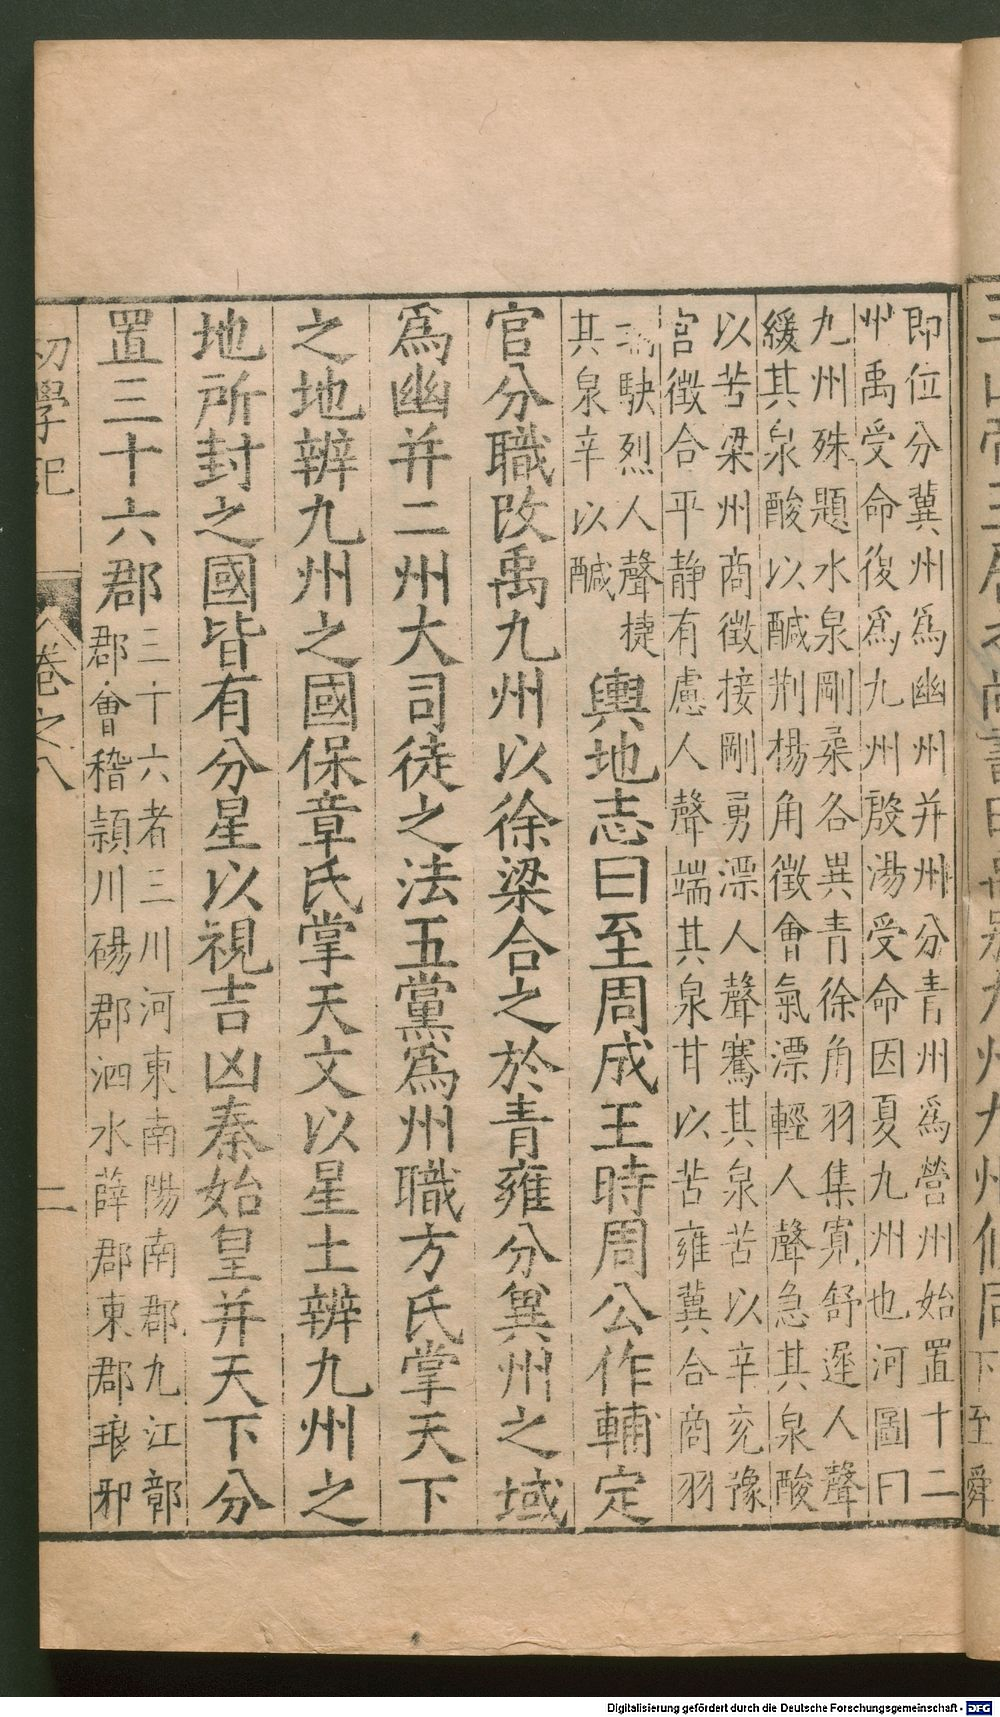 九州九州攸同
下至舜
即位分冀州爲幽州并州分青州爲營州始置十二
州禹受命復爲九州殷湯受命因夏九州也河圖曰
九州殊題水泉剛柔各異青徐角羽集寬舒遲人聲
緩其泉酸以醎荆楊角徵會氣漂輕人聲急其泉酸
以苦梁州商徵接剛勇漂人聲騫其泉苦以辛兖豫
宫徵合平静有慮人聲端其泉甘以苦雍冀合商羽
駃烈人聲捷
其泉辛以醎
輿地志曰至周成王時周公作輔定
官分職改禹九州以徐梁合之於青雍分冀州之域
爲幽并二州大司徒之法五黨爲州職方氏掌天下
之地辨九州之國保章氏掌天文以星土辨九州之
地所封之國皆有分星以視吉凶秦始皇并天下分
置三十六郡
三十六者三川河東南陽南郡九江鄣
郡會稽潁川碭郡泗水薛郡東郡琅邪
初學記 卷之八 二
Digitalisierung gefördert durch die Deutsche Forschungsgemeinschaft - DFG